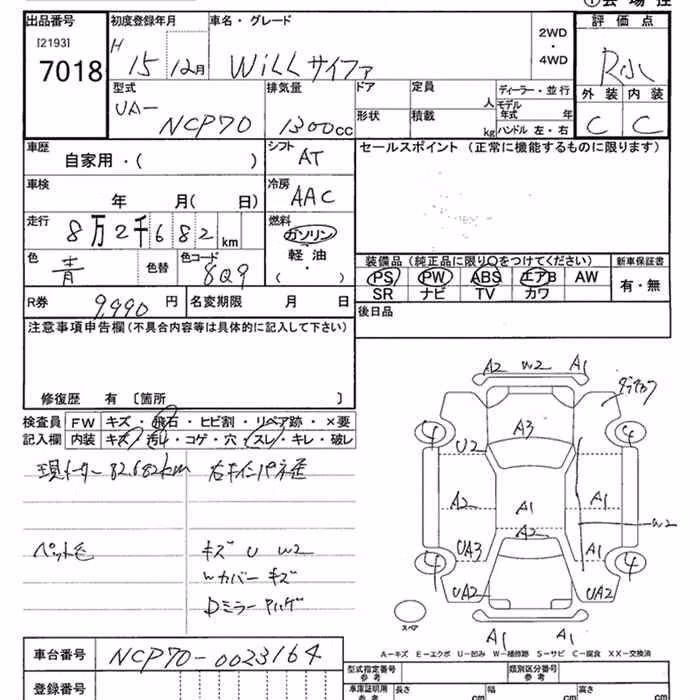 出品番号 初度登録年月 車名・グレード 評価点
[2193] H 2WD
7018 15 12月 WiLLサイファ ・ R小
4WD
型式 排気量 ドア 定員 ディーラー・並行 外装 内装
UA- 人 モデル年式 年
NCP70 1300cc 形状 積載 kg ハンドル 左・右 C C
車歴 シフト セールスポイント (正常に機能するものに限ります)
自家用・( ) AT
車検 冷房
年 月( 日) AAC
走行 燃料
8万2千682km ガソリン
色 色替 色コード 軽油 装備品 (純正品に限り○をつけてください) 新車保証書
青 8Q9 ( ) PS PW ABS エアB AW 有・無
R券 9,990円 名変期限 月 日 SR ナビ TV カワ
注意事項申告欄(不具合内容等は具体的に記入して下さい) 後日品
修復歴 有 〔箇所 〕
A2 W2 A1
検査員 FW キズ・飛石・ヒビ割・リペア跡・×要
記入欄 内装 キズ・汚れ・コゲ・穴・スレ・キレ・破レ
A3
4 4
現メーター 82,682km
U2
A2 A1 A1
A2 W2
キズ U W2
UA3 A1
Wカバー キズ
4 4
Dミラー
UA2 UA2
スペア
A1 A1
A-キズ E-エクボ U-凹み W-補修跡 S-サビ C-腐食 XX-交換済
車台番号 NCP70-0023164 型式指定番号 参考 類別区分番号 参考
登録番号 車庫証明用 参考 長さ cm 幅 cm 高さ cm